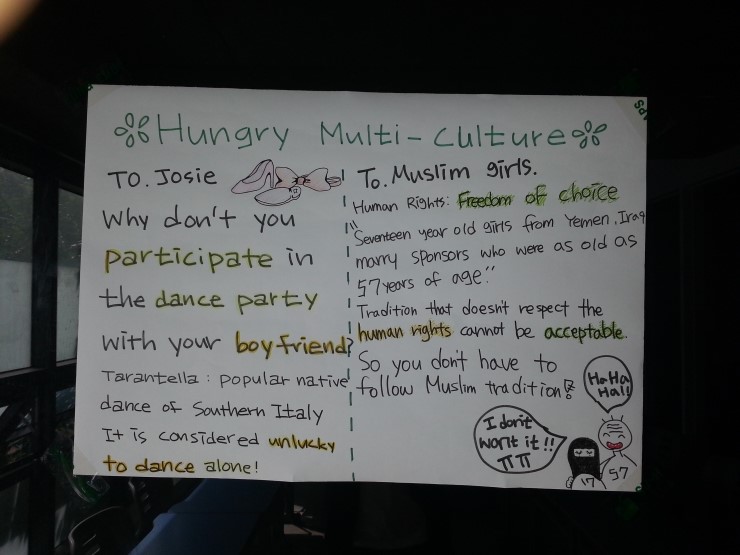 Hungry Multi-Culture
TO. Josie
Why don't you
participate in
the dance party
with your boyfriend?
Tarantella : popular native
dance of Southern Italy
It is considered unlucky
to dance alone!
To. Muslim girls.
Human Rights: Freedom of choice
"Seventeen year old girls from Yemen, Iraq
marry sponsors who were as old as
57 years of age."
Tradition that doesn't respect the
human rights cannot be acceptable.
So you don't have to
follow Muslim tradition!
HaHa
Ha!!
I don't
want it !!
ㅠㅠ
17
57